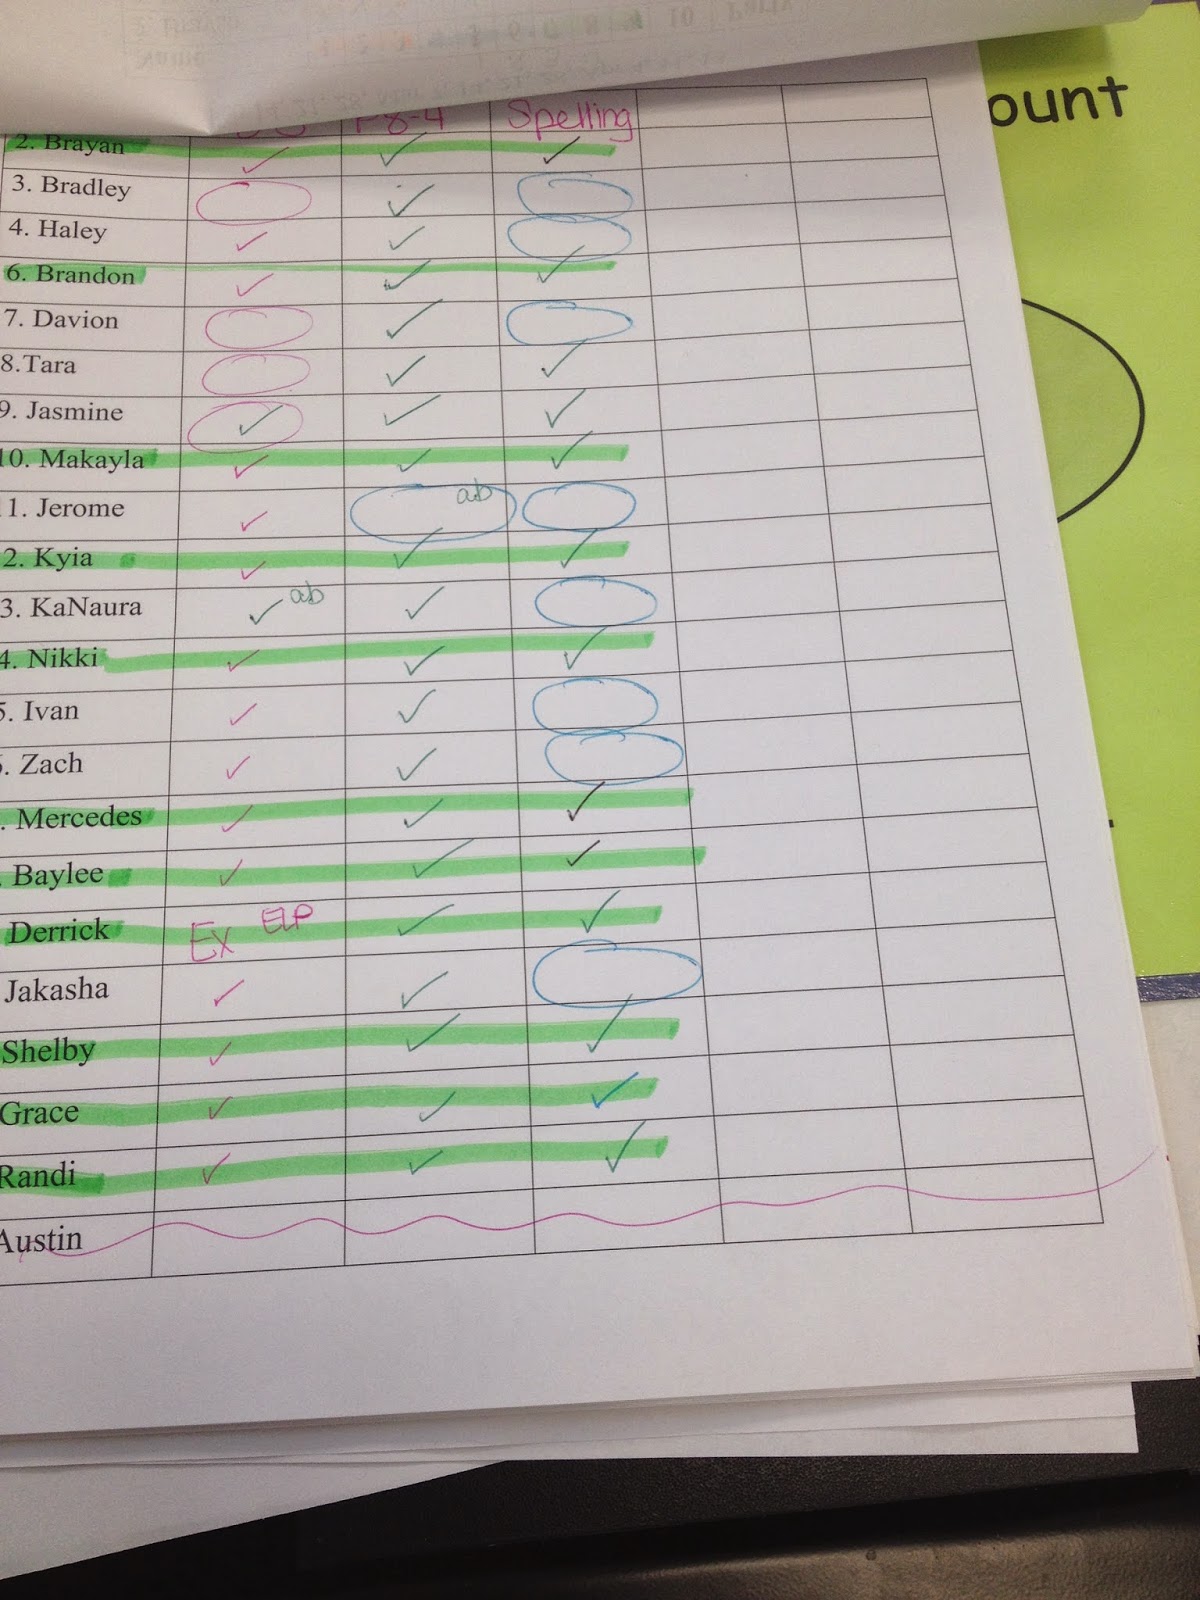 P8-4 Spelling
ount
2. Brayan
3. Bradley
4. Haley
6. Brandon
7. Davion
8.Tara
9. Jasmine
10. Makayla
1. Jerome ab
2. Kyia
3. KaNaura ab
4. Nikki
5. Ivan
. Zach
. Mercedes
Baylee
Derrick Ex ELP
Jakasha
Shelby
Grace
Randi
Austin